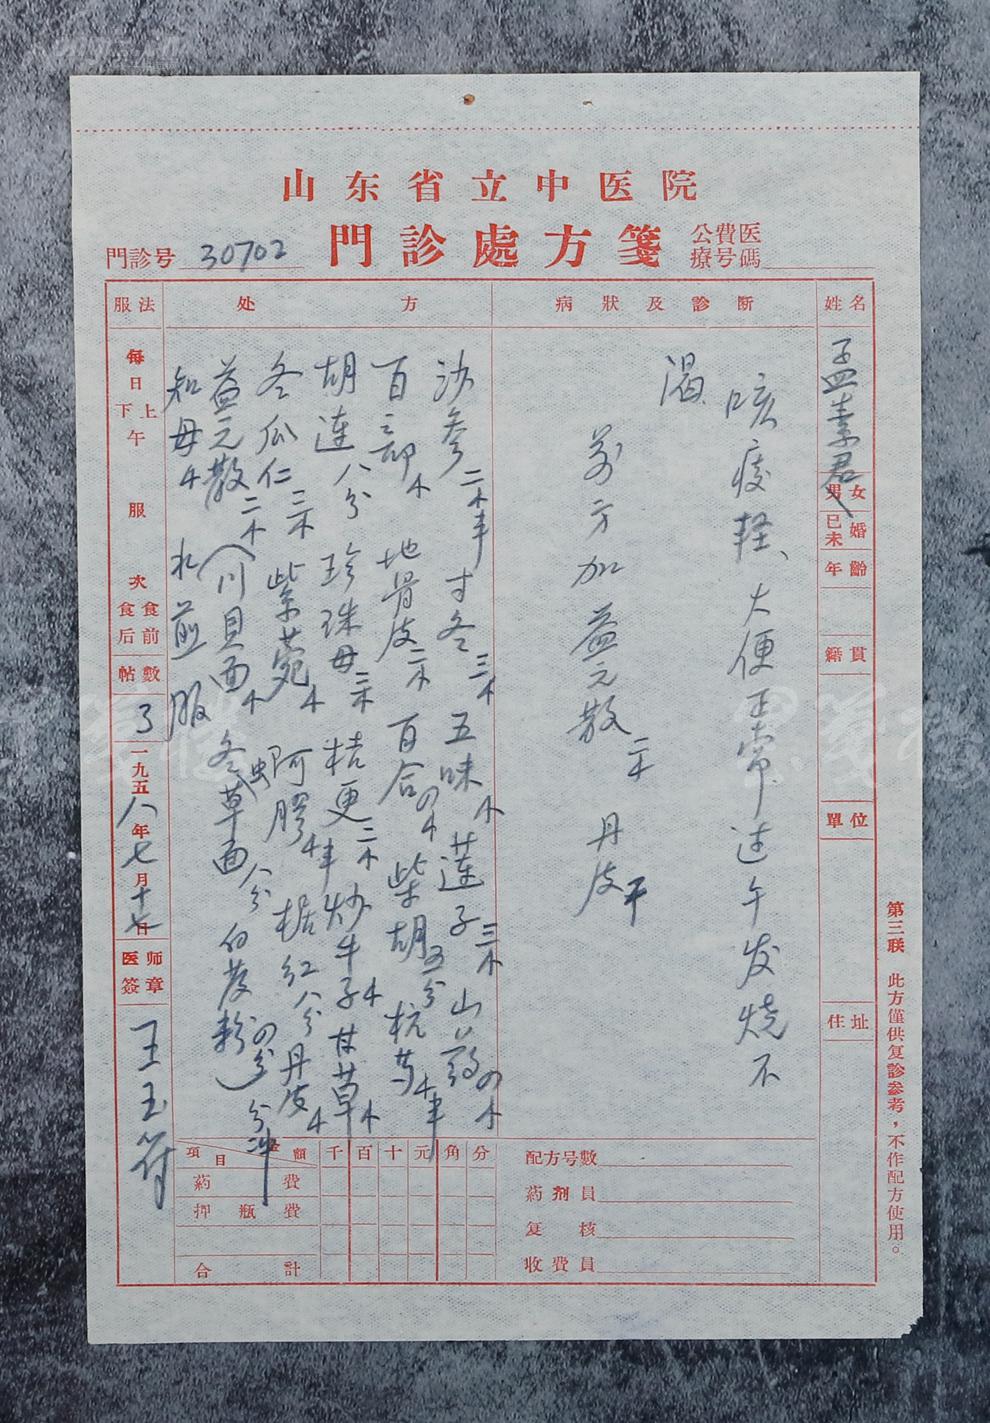 山东省立中医院
門診處方箋
門診号 30702
公費医療号碼
姓名
孟素君
男 女
已 未 婚
年齡
籍貫
單位
住址
病狀及診断
咳痰轻、大便正常、过午发烧不
渴
前方加益元散 二钱 丹皮 一钱
处方
沙参 二钱半 寸冬 三钱 五味 一钱 莲子 三钱 山药 四钱
百部 一钱 地骨皮 二钱 百合 四钱 柴胡 五分 杭芍 一钱半
胡连 八分 珍珠母 三钱 桔更 三钱 炒牛子 一钱 甘草 一钱
冬瓜仁 三钱 紫菀 一钱 阿胶 一钱半 桔红 八分 丹皮 一钱
益元散 二钱 (川貝面 一钱 冬虫草面 八分 白及粉 四分) 分冲
知母 一钱 水煎服
服法
每日
上下午
服
次
食前
食后
帖數
3
一九五八年七月十七日
医师
簽章
王玉符
項目 金額 千 百 十 元 角 分
葯費
押瓶費
合計
配方号數
葯剂員
复核
收費員
第三联 此方僅供复診参考，不作配方使用。